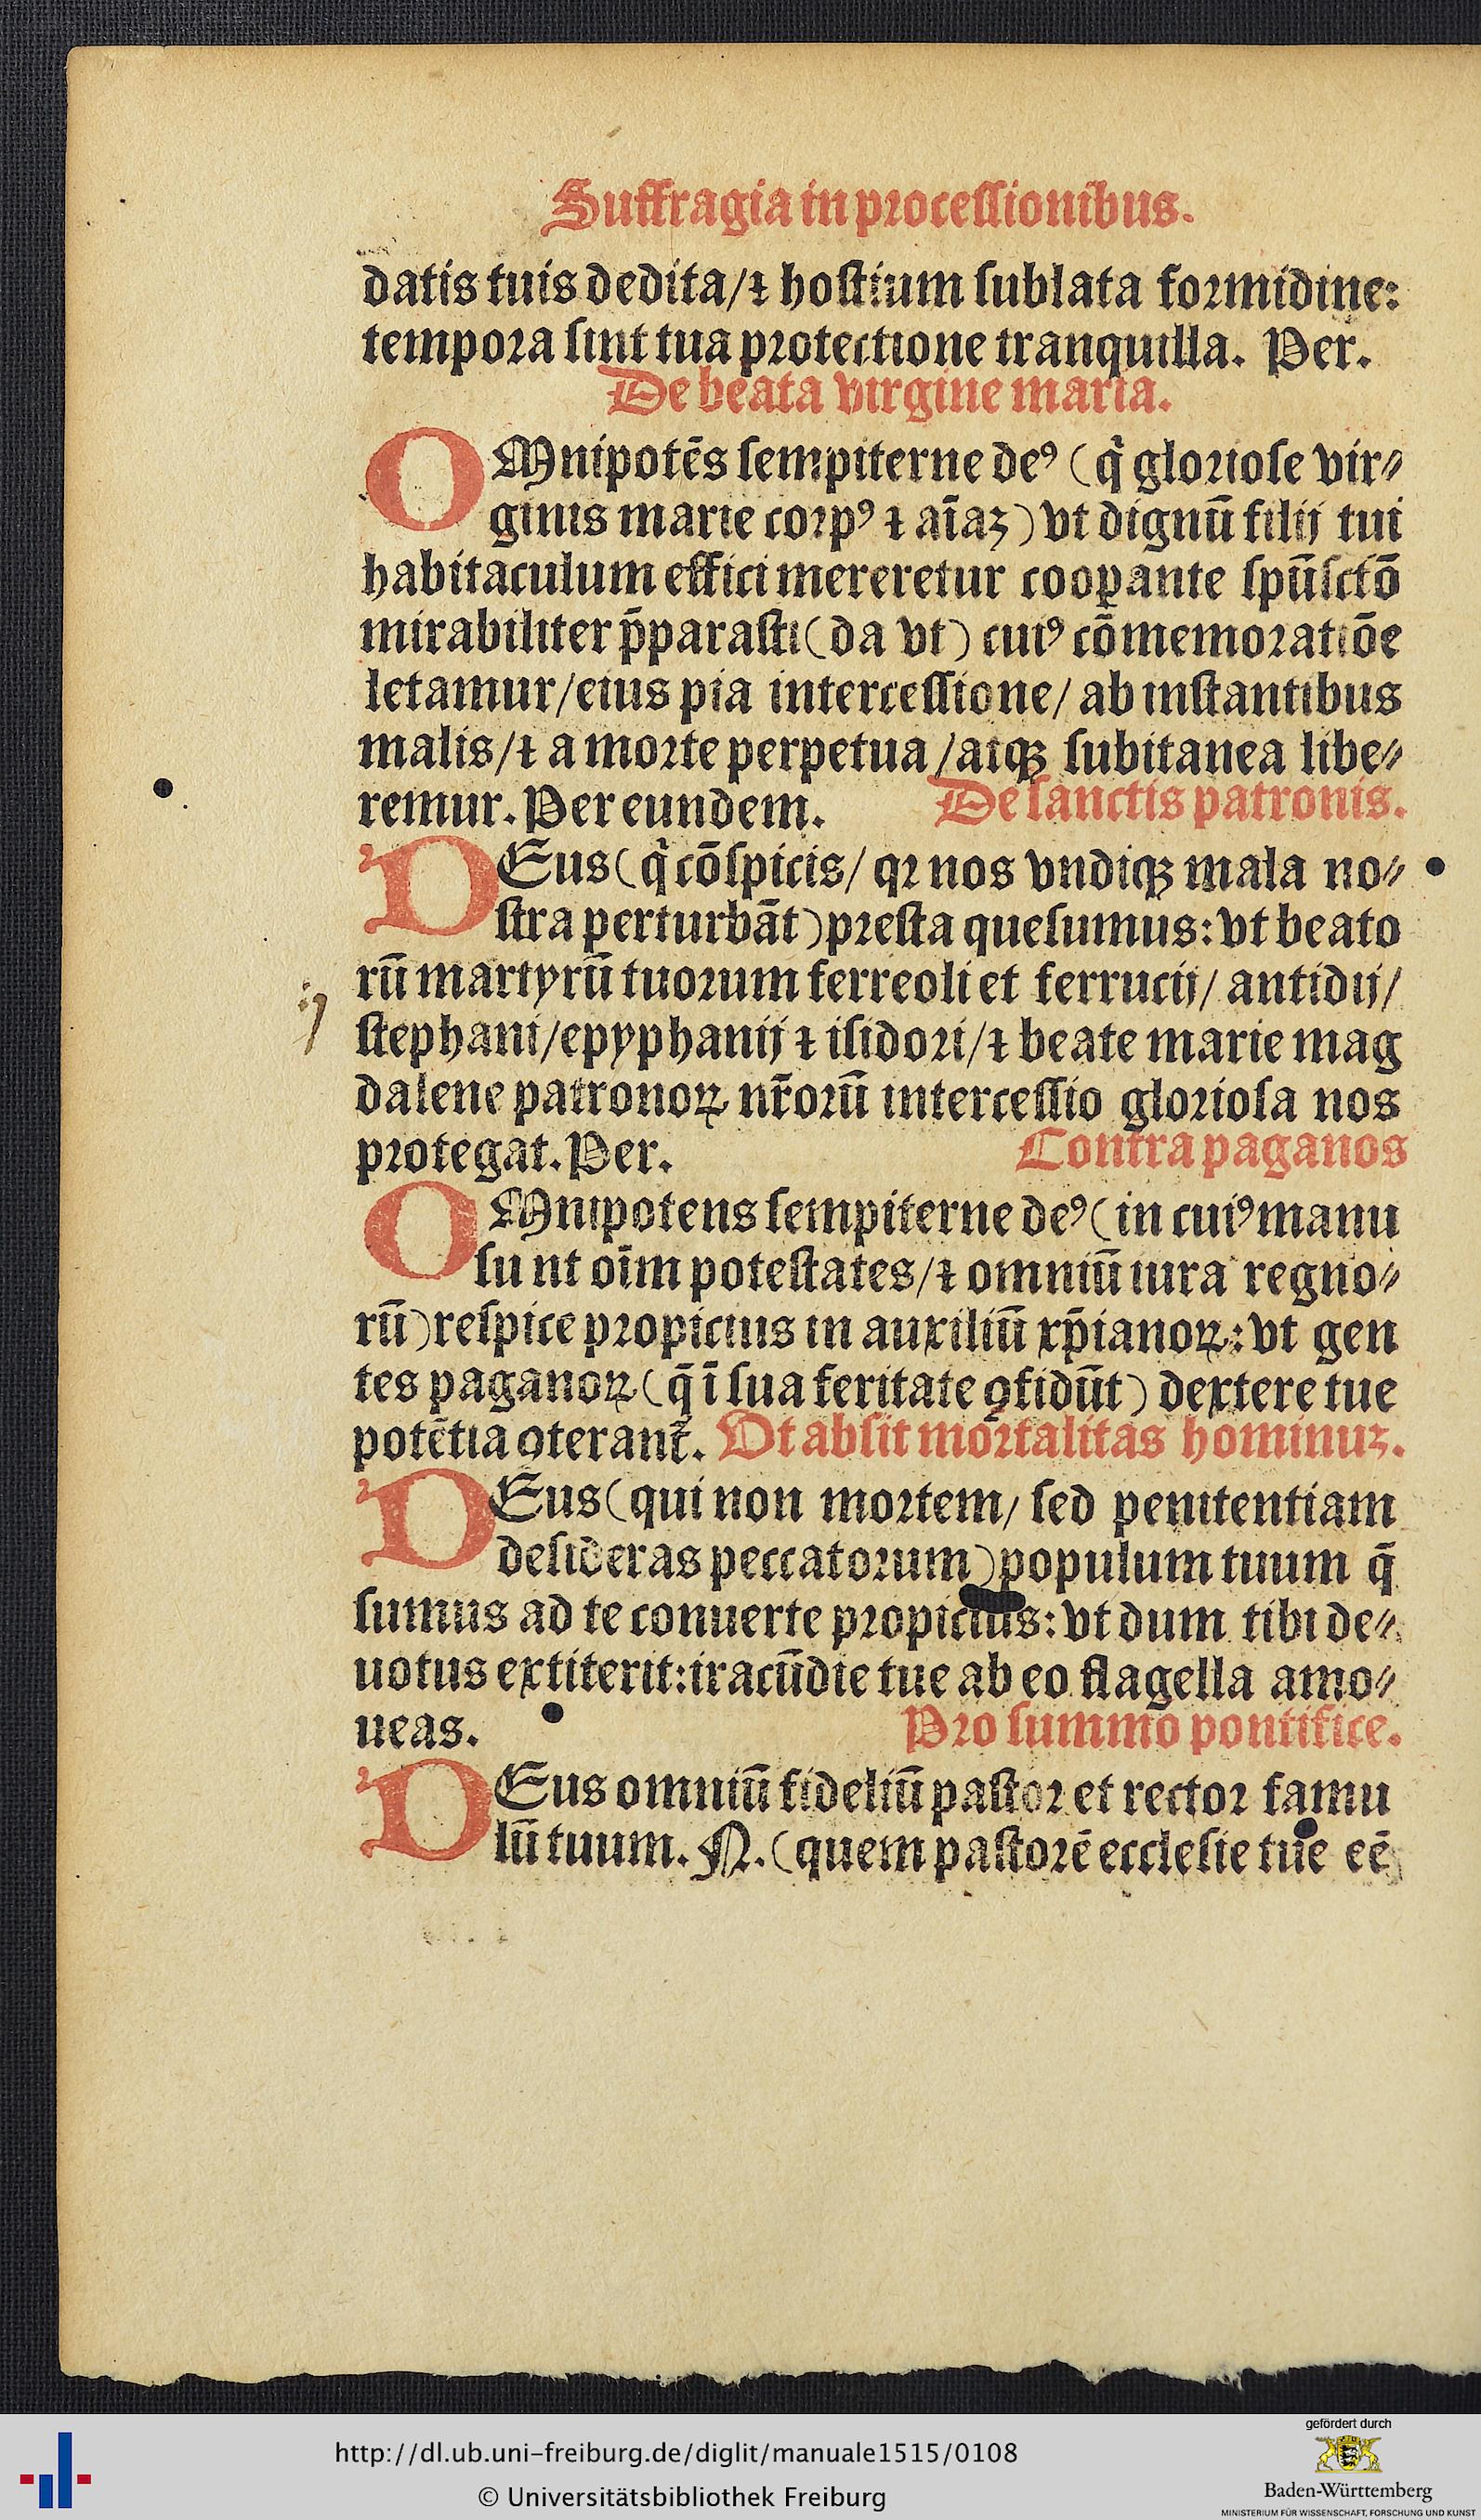 Suffragia in processionibus.
datis tuis dedita/⁊ hostium sublata formidine:
tempora sint tua protectione tranquilla. Per.
De beata virgine maria.
OMnipotēs sempiterne deꝰ (q̇ gloriose vir⸗
ginis marie corpꝰ ⁊ aīaꝫ) vt dignū filij tui
habitaculum effici mereretur cooꝑante spūsctō
mirabiliter p̄parasti (da vt) cuiꝰ cōmemoratiōe
letamur/eius pia intercessione/ ab instantibus
malis/⁊ a morte perpetua/atqꝫ subitanea libe⸗
remur. Per eundem. De sanctis patronis.
DEus (q̇ cōspicis/ qꝛ nos vndiqꝫ mala no⸗
stra perturbāt) presta quesumus: vt beato
rū martyrū tuorum ferreoli et ferrucij/ antidij/
stephani/epyphanij ⁊ isidori/⁊ beate marie mag
dalene patronoꝝ nr̄orū intercessio gloriosa nos
protegat. Per. Contra paganos
OMnipotens sempiterne deꝰ (in cuiꝰ manu
sunt oīm potestates/⁊ omniū iura regno⸗
rū) respice propicius in auxiliū xp̄ianoꝝ: vt gen
tes paganoꝝ (q̄ ī sua feritate ꝯfidūt) dextere tue
potētia ꝯterant᷑. Vt absit mortalitas hominuꝫ.
DEus (qui non mortem/ sed penitentiam
desideras peccatorum) populum tuum q̄
sumus ad te conuerte propicius: vt dum tibi de⸗
uotus extiterit: iracūdie tue ab eo flagella amo⸗
ueas. Pro summo pontifice.
DEus omniū fideliū pastor et rector famu
lū tuum. N. (quem pastorē ecclesie tue eē
http://dl.ub.uni-freiburg.de/diglit/manuale1515/0108
© Universitätsbibliothek Freiburg
gefördert durch
Baden-Württemberg
MINISTERIUM FÜR WISSENSCHAFT, FORSCHUNG UND KUNST